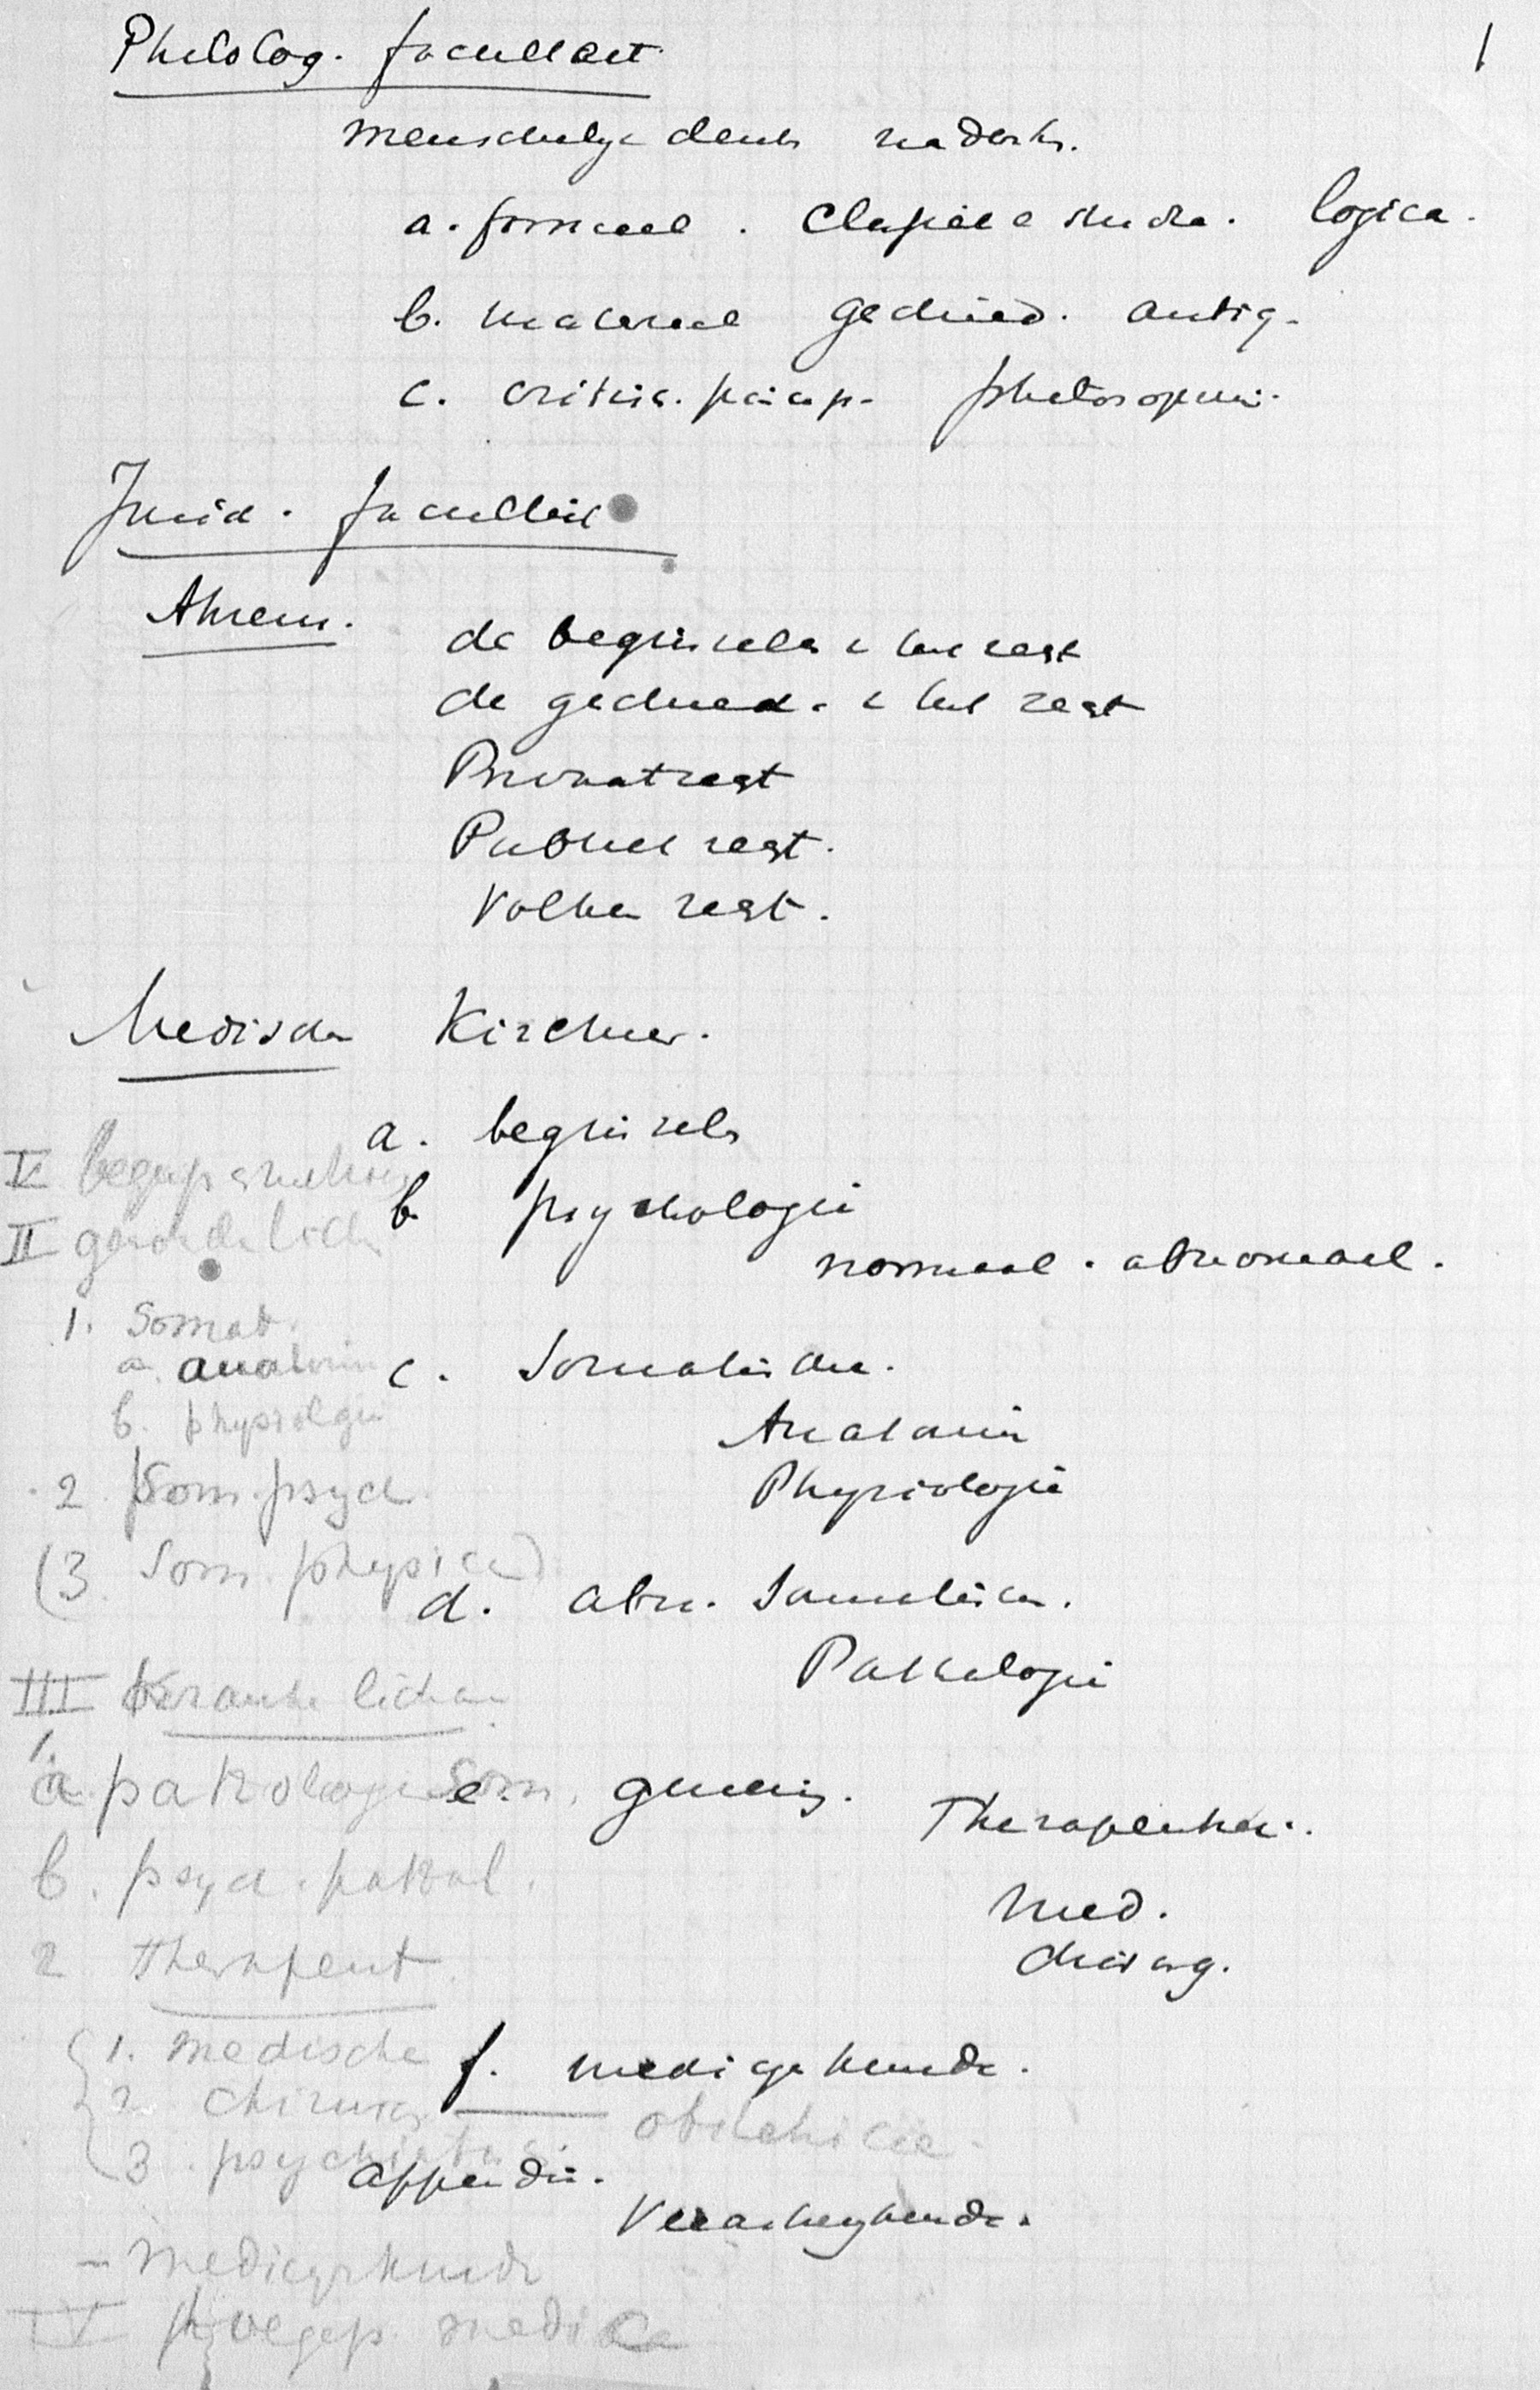 Philolog. faculteit
1
menschelyk denk
a. formeel. Classieke studie. logica.
b. materieel geschied. antiq.
c. critiek. princip. philosophie.
Jurid. faculteit
Ahrens.
de beginselen v het regt
de geschied. v het regt
Privaatregt
Publiek regt.
Volken regt.
Medische Kirchner.
a. beginsels
V
b. psychologie
II gezonde lich
normaal. abnormaal.
1. Somat.
a. anatomie
c. Somatische.
b. physiologie
Anatomie
2. Som. psych.
Physiologie
(3. Som. physica)
d. abn. Somatische.
Pathologie
III Kranke lichaam
1.
a. pathologie Som.
e. genezing. Therapeutica.
b. psych. pathol.
Med.
2 Therapeut.
chirurg.
1. medische
f. medicynkunde.
2. chirurg
obstetricie.
3. psychiatrie.
Appendix.
Veeartseykunde.
– medicynkunde
IV medica